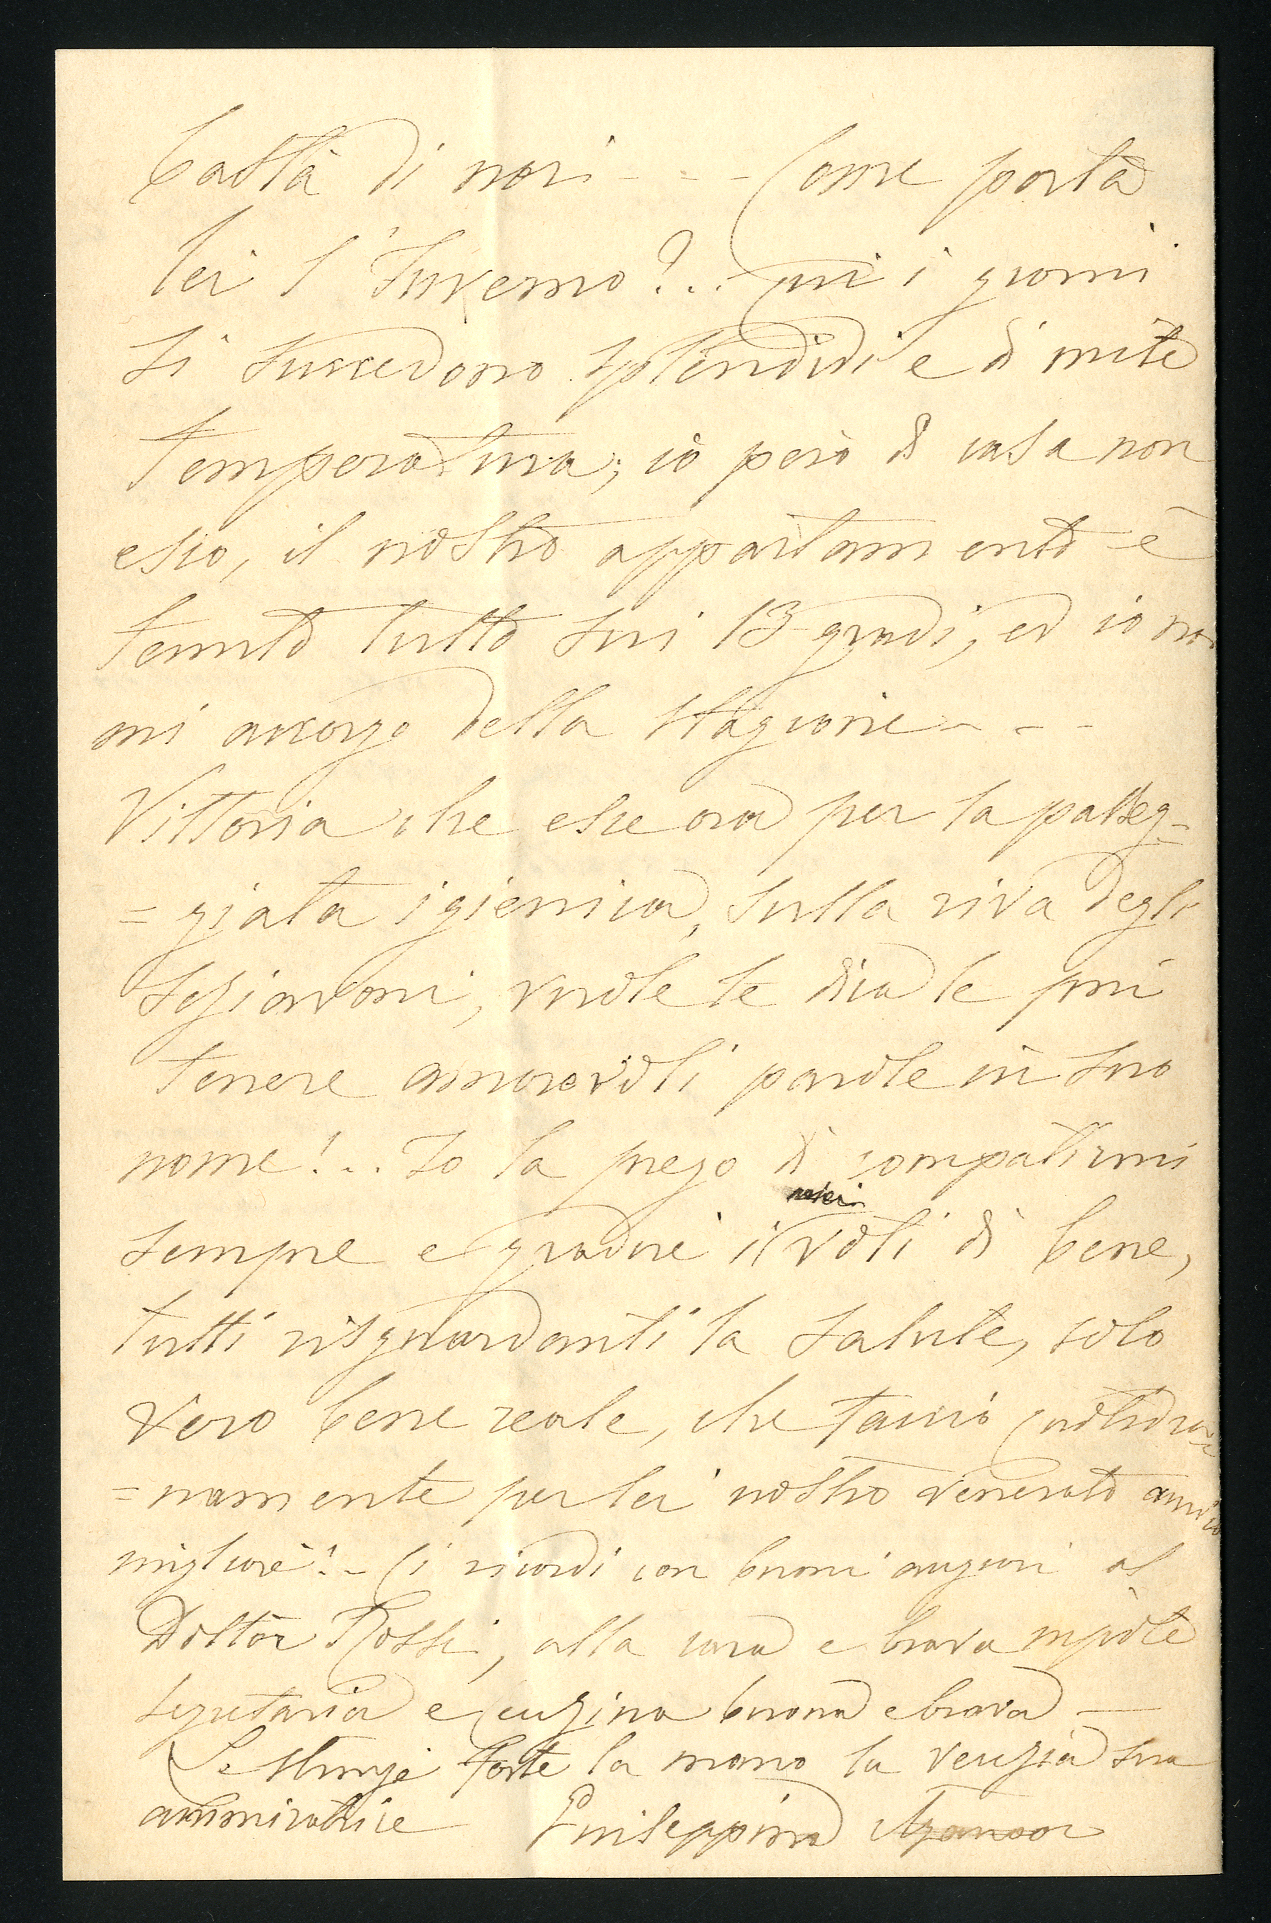 basta di noi - - - Come porta
lei l'Inverno?.. Qui i giorni
si succedono splendidi e di mite
temperatura; io però di casa non
esco, il nostro appartamento è
tenuto tutto sui 13 gradi, ed io non
mi accorgo della stagione - - -
Vittoria che esce ora per la passeg=
=giata igienica, sulla riva degli
Schiavoni, vuole le dica le più
tenere amorevoli parole in suo
nome!.. Io la prego di compatirmi
sempre e gradire i voti di bene,
miei
tutti risguardanti la salute, solo
vero bene reale, che faccio quotidia=
=namente per lei nostro venerato amico
migliore! - Ci ricordi con buoni auguri al
Dottor Rossi, alla cara e brava nipote
segretaria e cugina buona e brava —
Le stringe forte la mano la vecchia sua
ammiratrice Giuseppina Aganoor